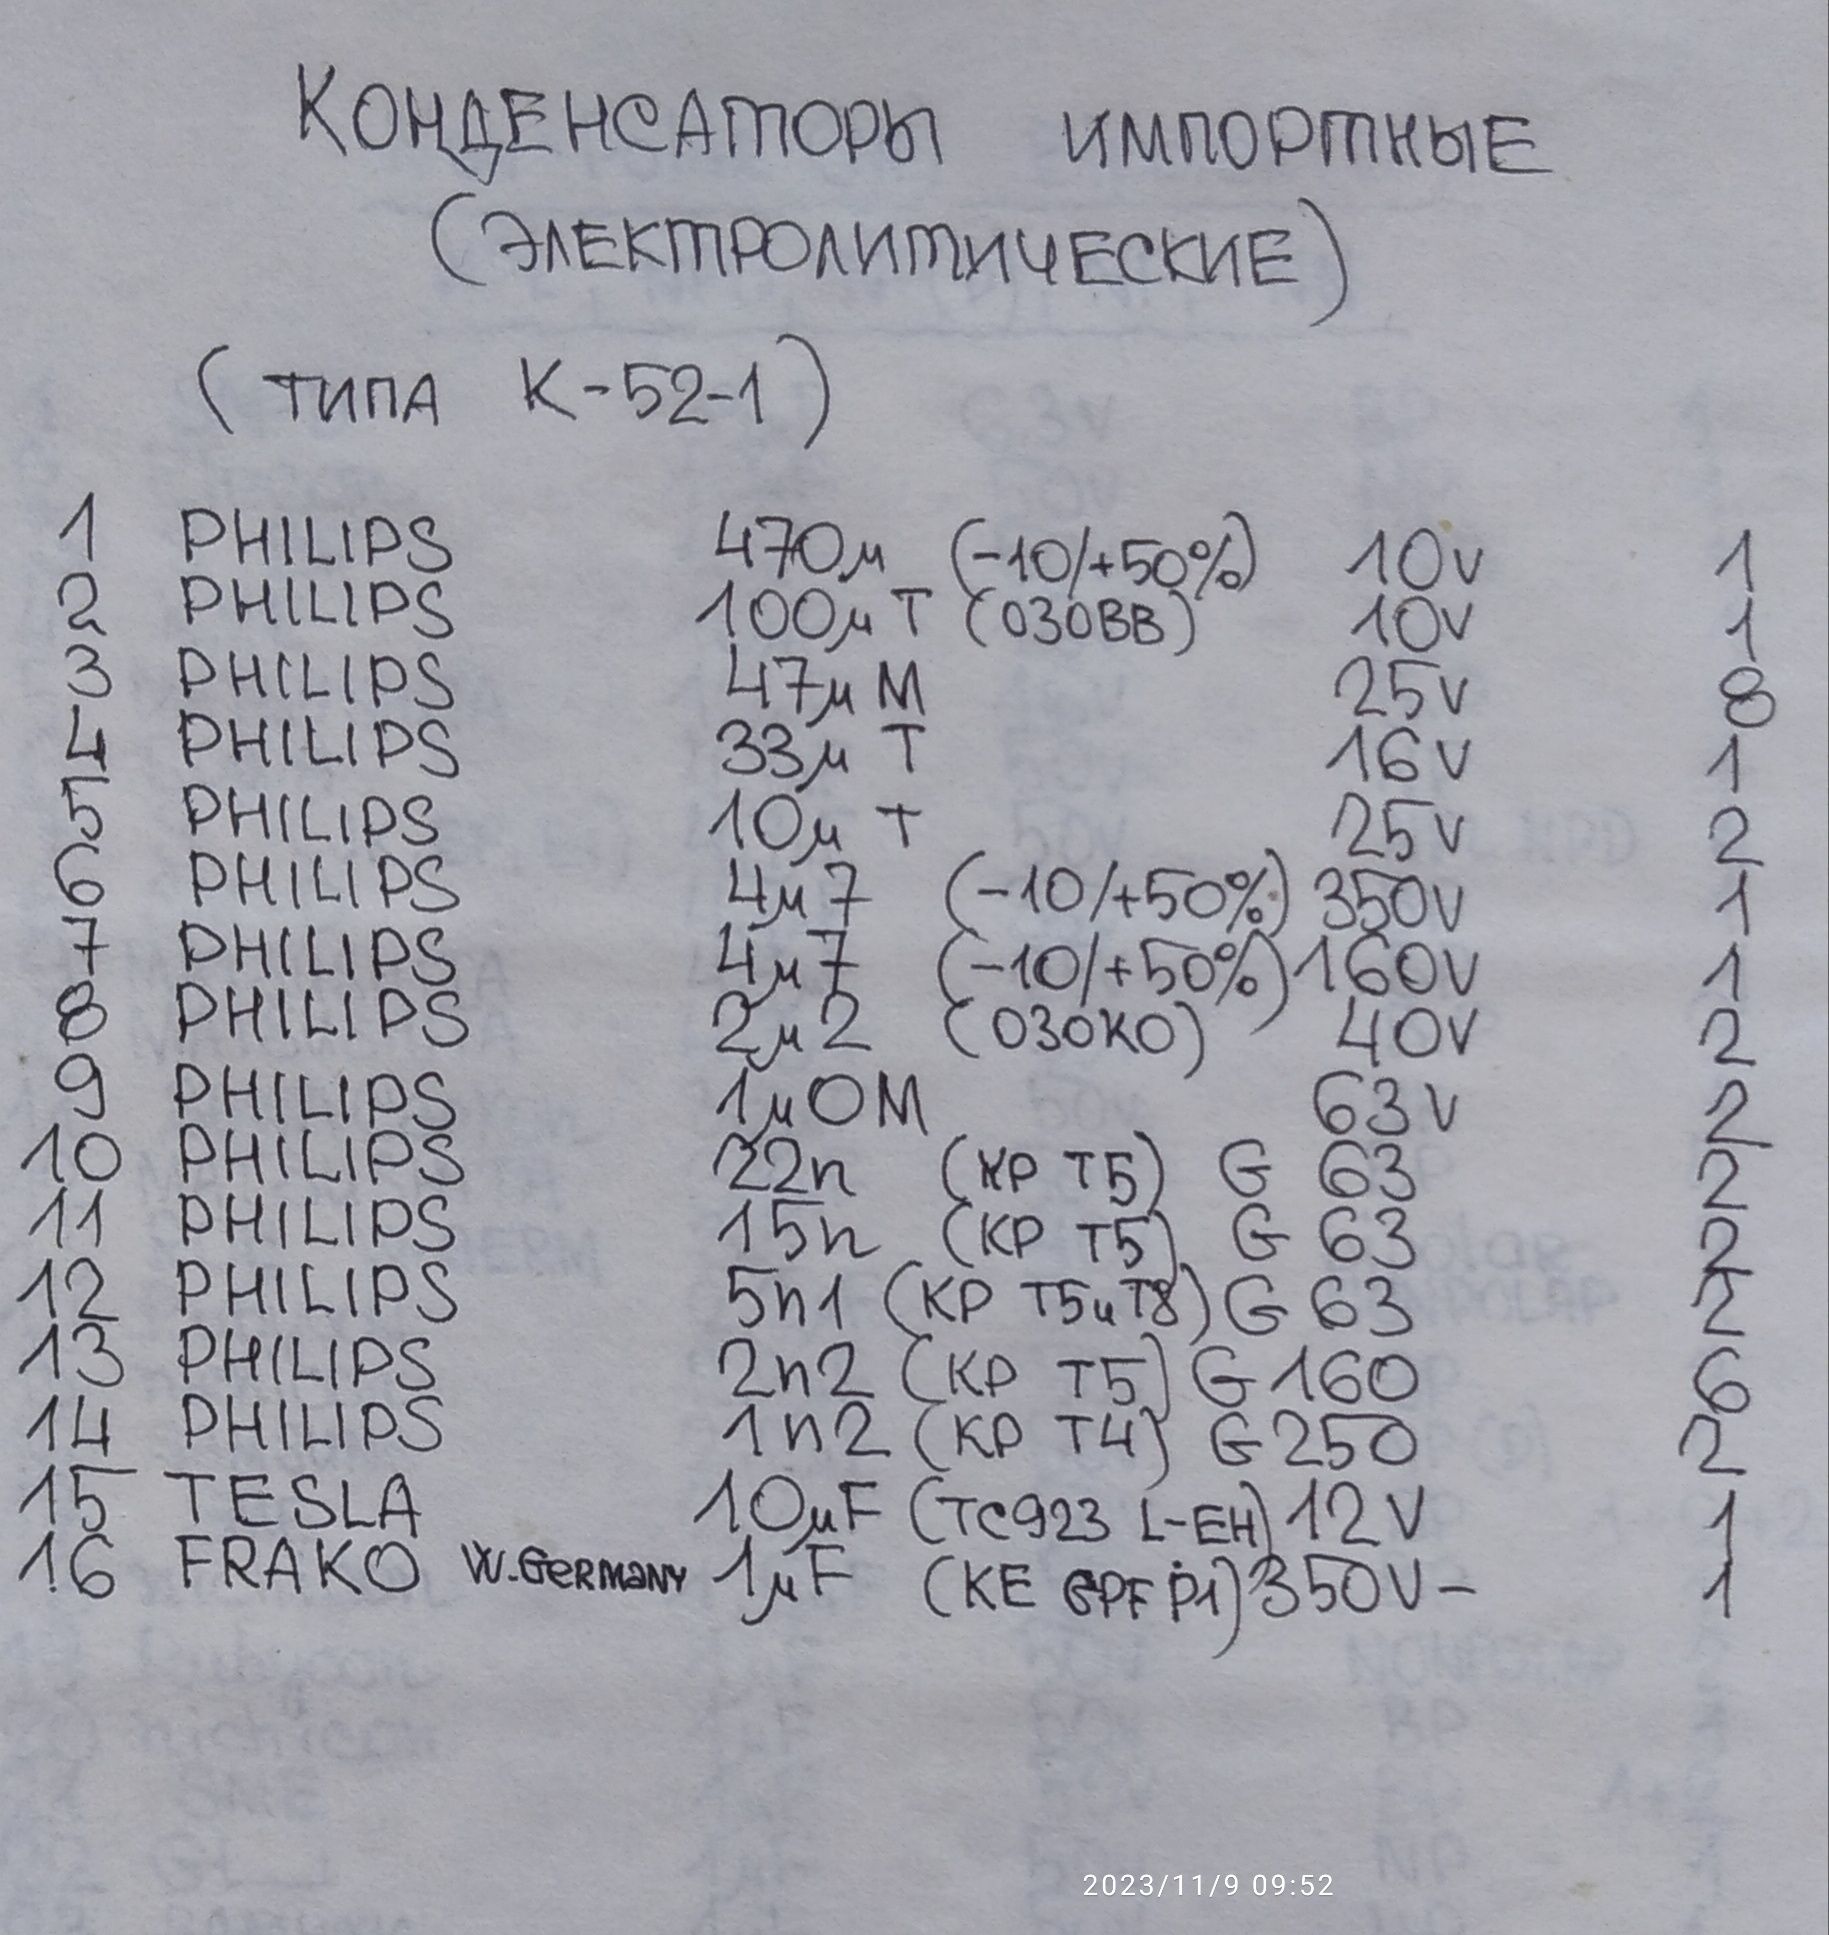 КОНДЕНСАТОРЫ ИМПОРТНЫЕ
(ЭЛЕКТРОЛИТИЧЕСКИЕ)
(ТИПА К-52-1)
1 PHILIPS 470µ (-10/+50%) 10V 1
2 PHILIPS 100µ T (030BB) 10V 1
3 PHILIPS 47µ M 25V 8
4 PHILIPS 33µ T 16V 1
5 PHILIPS 10µ T 25V 2
6 PHILIPS 4µ7 (-10/+50%) 350V 1
7 PHILIPS 4µ7 (-10/+50%) 160V 1
8 PHILIPS 2µ2 (030KO) 40V 2
9 PHILIPS 1µ0M 63V 2
10 PHILIPS 22n (KP T5) G 63 2
11 PHILIPS 15n (KP T5) G 63 2
12 PHILIPS 5n1 (KP T5 и T8) G 63 2
13 PHILIPS 2n2 (KP T5) G 160 6
14 PHILIPS 1n2 (KP T4) G 250 2
15 TESLA 10µF (TC923 L-EH) 12V 1
16 FRAKO W.GERMANY 1µF (KE P1) 350V- 1
2023/11/9 09:52